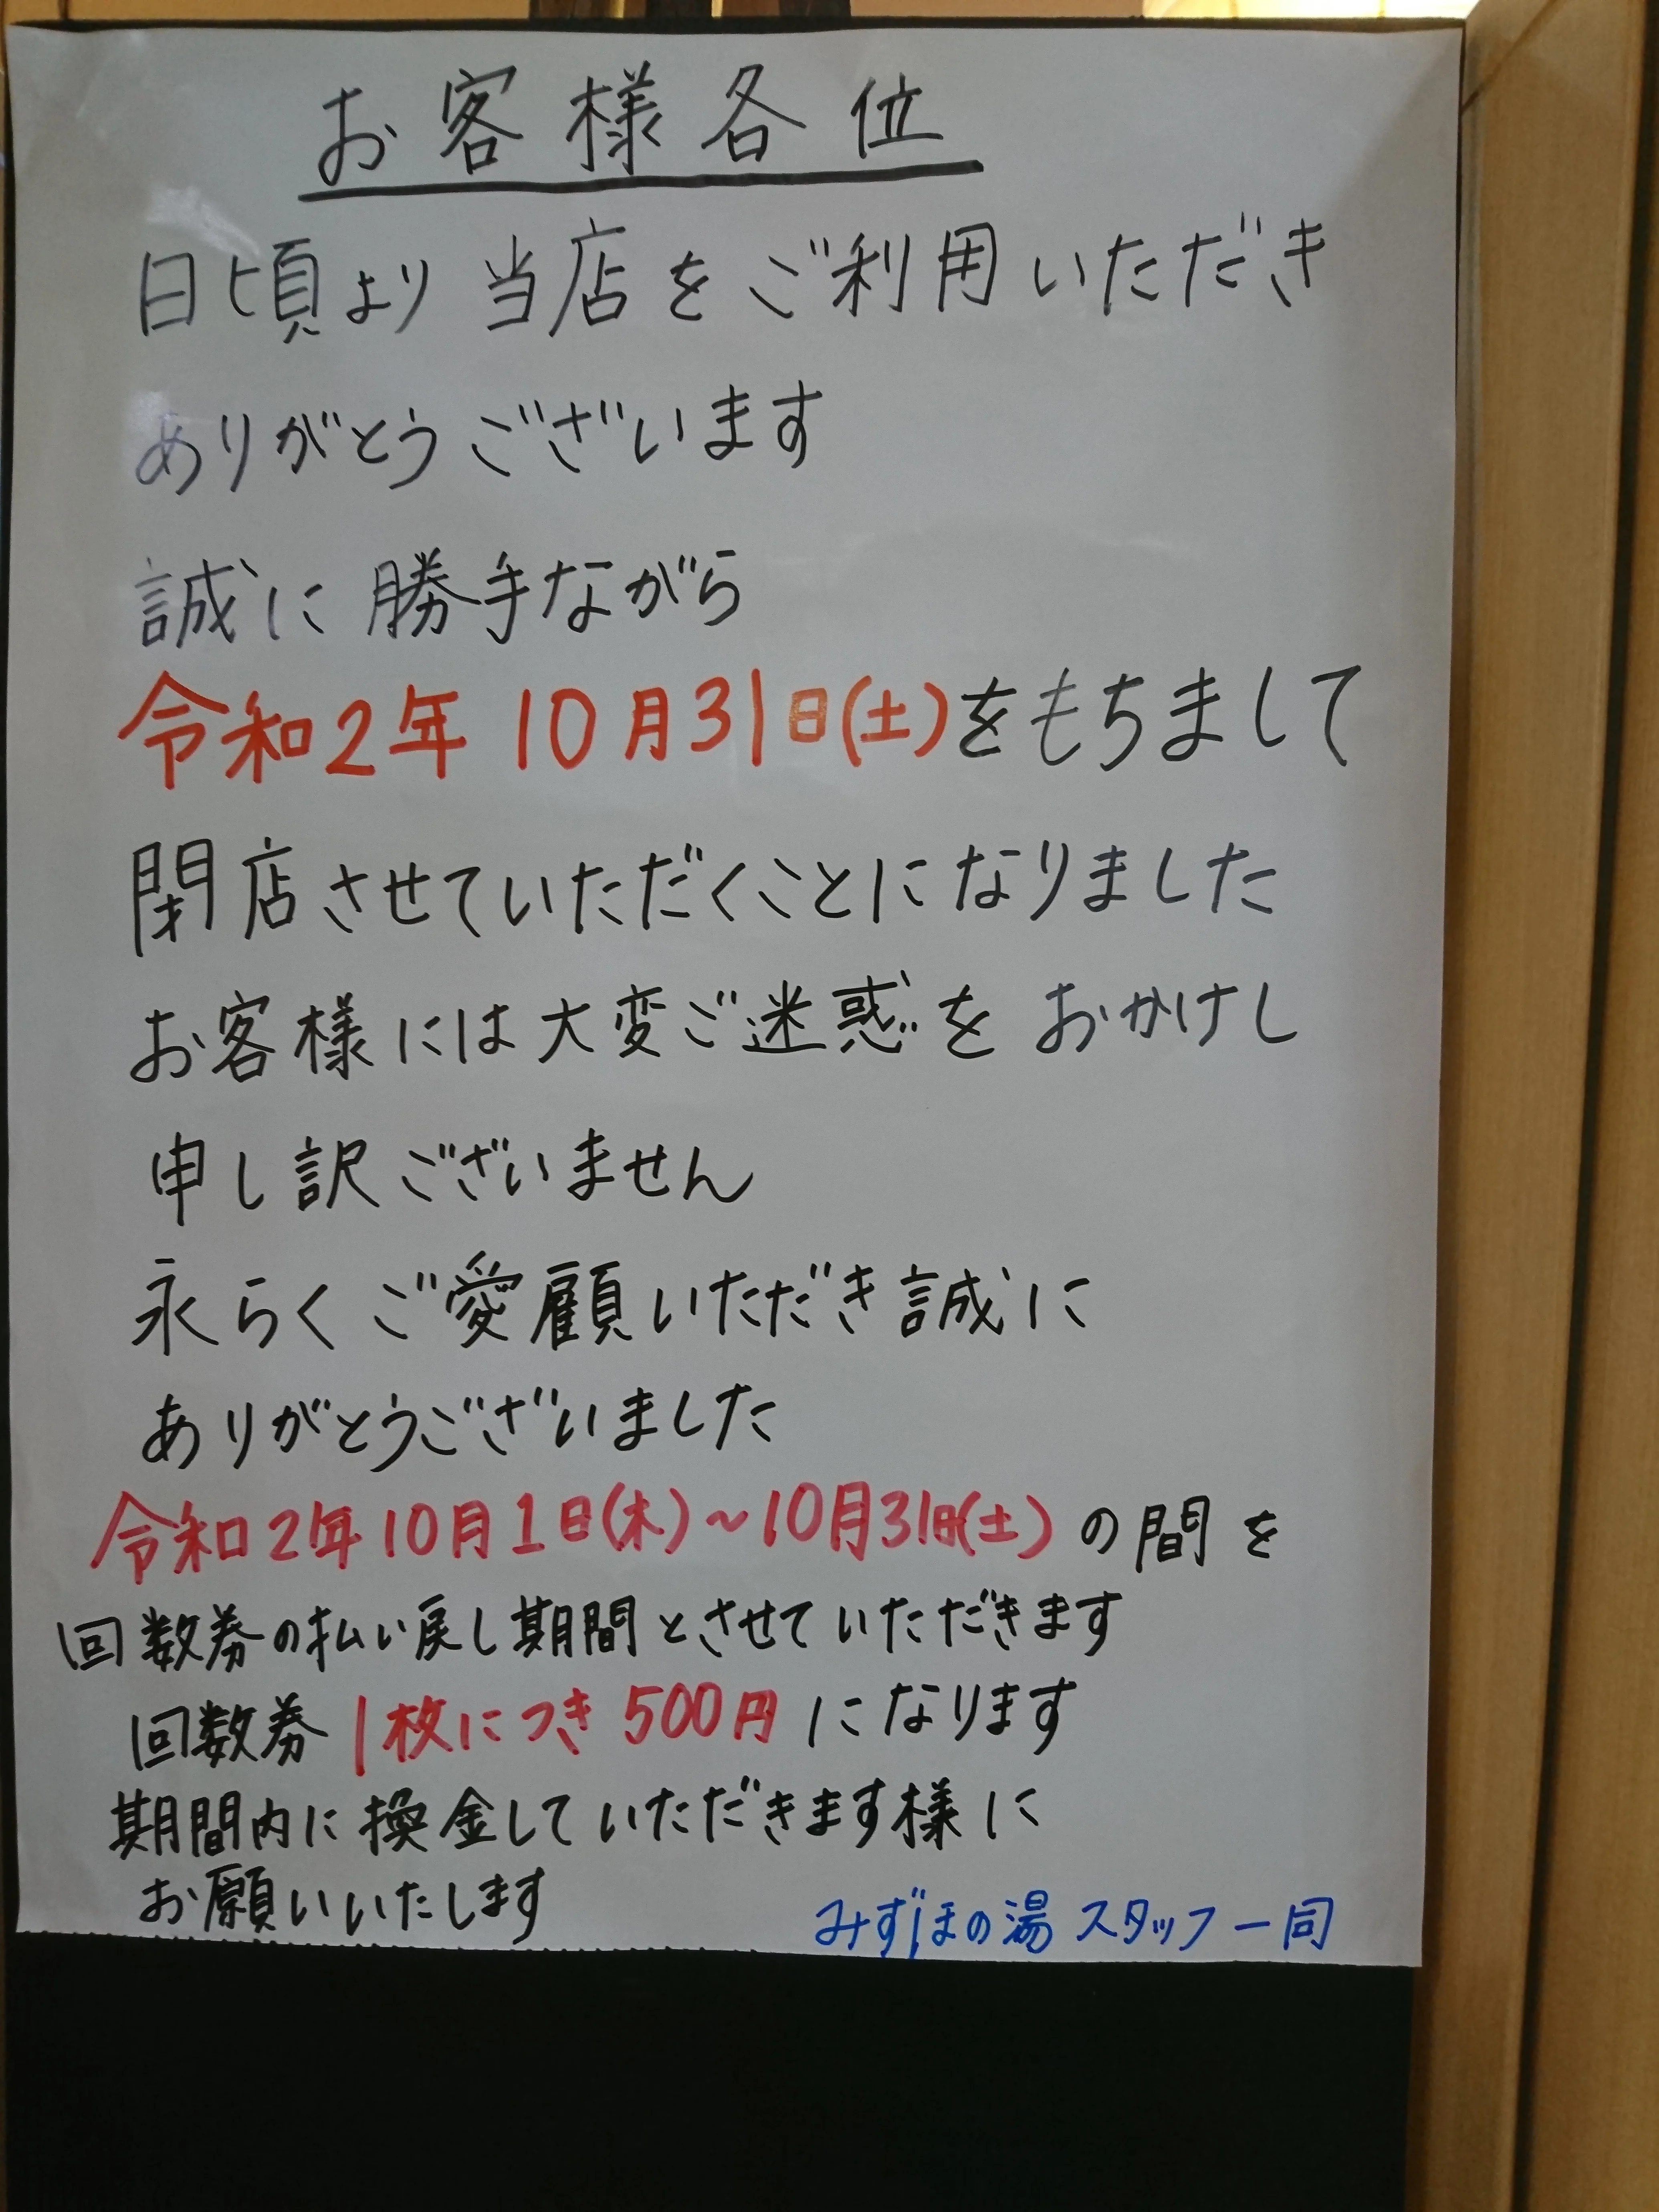 お客様各位
日頃より当店をご利用いただき
ありがとうございます
誠に勝手ながら
令和2年10月31日(土)をもちまして
閉店させていただくことになりました
お客様には大変ご迷惑をおかけし
申し訳ございません
永らくご愛顧いただき誠に
ありがとうございました
令和2年10月1日(木)~10月31日(土)の間を
回数券の払い戻し期間とさせていただきます
回数券1枚につき500円になります
期間内に換金していただきます様に
お願いいたします
みずほの湯 スタッフ一同